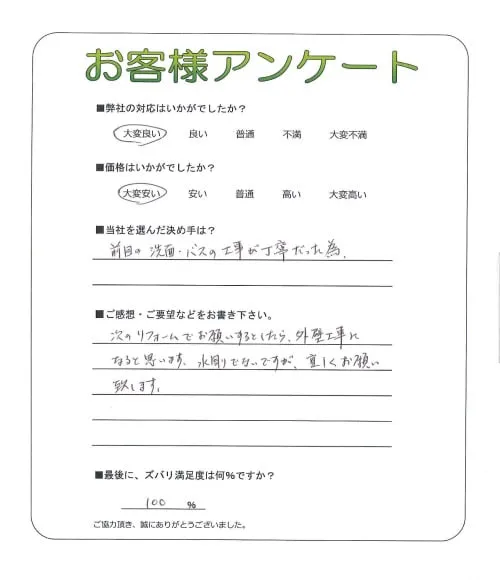 お客様アンケート
■弊社の対応はいかがでしたか?
大変良い 良い 普通 不満 大変不満
■価格はいかがでしたか?
大変安い 安い 普通 高い 大変高い
■当社を選んだ決め手は?
前回の洗面・バスの工事が丁寧だった為、
■ご感想・ご要望などをお書き下さい。
次のリフォームでお願いするとしたら、外壁工事に
なると思います。水周りでないですが、宜しくお願い
致します。
■最後に、ズバリ満足度は何%ですか?
100 %
ご協力頂き、誠にありがとうございました。